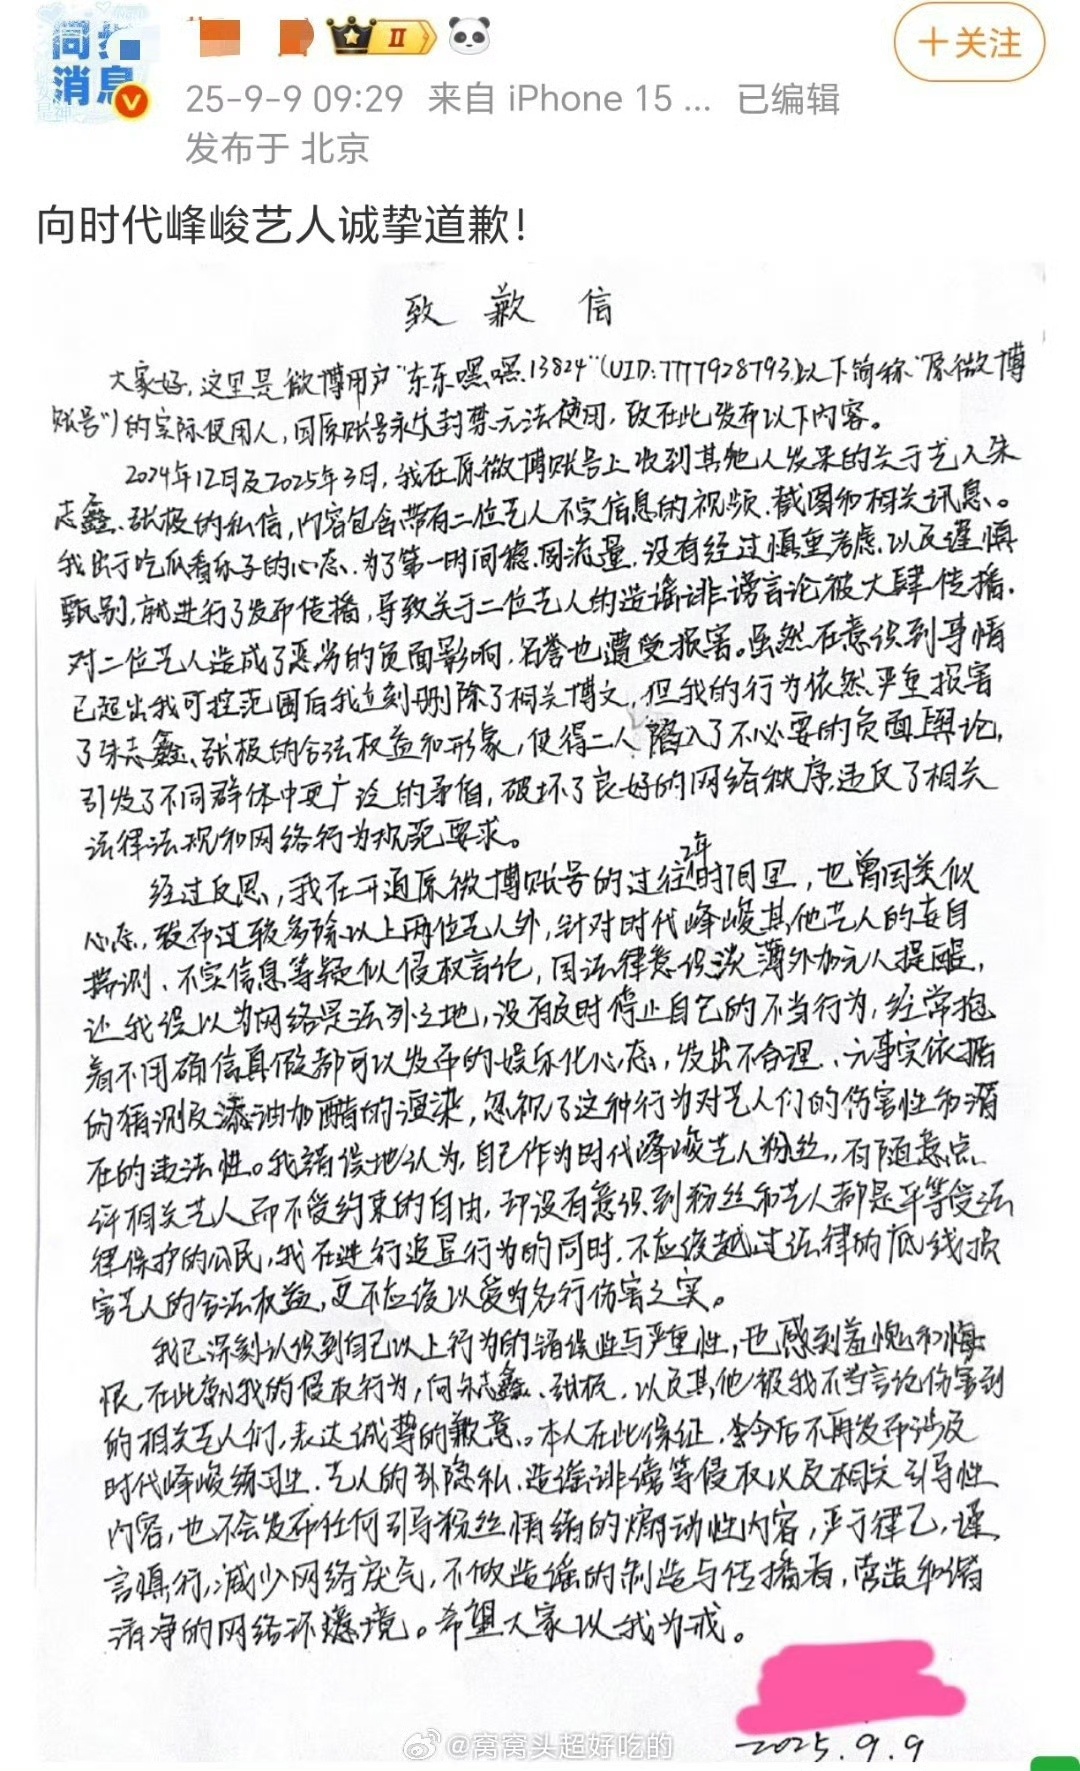 消息
II
+关注
25-9-9 09:29 来自 iPhone 15 ... 已编辑
发布于 北京
向时代峰峻艺人诚挚道歉！
致歉信
大家好，这里是微博用户“东东嘿嘿13824”(UID:777928793,以下简称“原微博
账号”)的实际使用人，因原账号永久封禁无法使用，故在此发布以下内容。
2024年12月及2025年3月，我在原微博账号上收到其他人发来的关于艺人朱
志鑫、张极的私信，内容包含带有二位艺人不实信息的视频、截图和相关讯息。
我出于吃瓜看乐子的心态、为了第一时间稳固流量、没有经过慎重考虑、以及谨慎
甄别，就进行了发布传播，导致关于二位艺人的造谣诽谤言论被大肆传播，
对二位艺人造成了恶劣的负面影响，名誉也遭受损害。虽然在意识到事情
已超出我可控范围后我立刻删除了相关博文，但我的行为依然严重损害
了朱志鑫、张极的合法权益和形象，使得二人陷入了不必要的负面舆论，
引发了不同群体中更广泛的矛盾，破坏了良好的网络秩序，违反了相关
法律法规和网络行为规范要求。
经过反思，我在开通原微博账号的过往2年时间里，也曾因类似
心态，发布过较多除以上两位艺人外，针对时代峰峻其他艺人的妄自
揣测、不实信息等疑似侵权言论，因法律意识淡薄外加无人提醒，
让我误以为网络是法外之地，没有及时停止自己的不当行为，经常抱
着不用确信真假都可以发布的娱乐化心态，发出不合理、无事实依据
的猜测及添油加醋的渲染，忽视了这种行为对艺人们的伤害性和潜
在的违法性。我错误地认为，自己作为时代峰峻艺人粉丝，有随意点
评相关艺人而不受约束的自由，却没有意识到粉丝和艺人都是平等受法
律保护的公民，我在进行追星行为的同时，不应该越过法律的底线损
害艺人的合法权益，更不应该以爱为名行伤害之实。
我已深刻认识到自己以上行为的错误性与严重性，也感到羞愧和悔
恨，在此就我的侵权行为，向朱志鑫、张极，以及其他被我不当言论伤害到
的相关艺人们，表达诚挚的歉意。本人在此保证，今后不再发布涉及
时代峰峻练习生、艺人的隐私、造谣诽谤等侵权以及相关引导性
内容，也不会发布任何引导粉丝情绪的煽动性内容，严于律己，谨
言慎行，减少网络戾气，不做造谣的制造与传播者，营造和谐
清净的网络环境。希望大家以我为戒。
2025.9.9
@窝窝头超好吃的